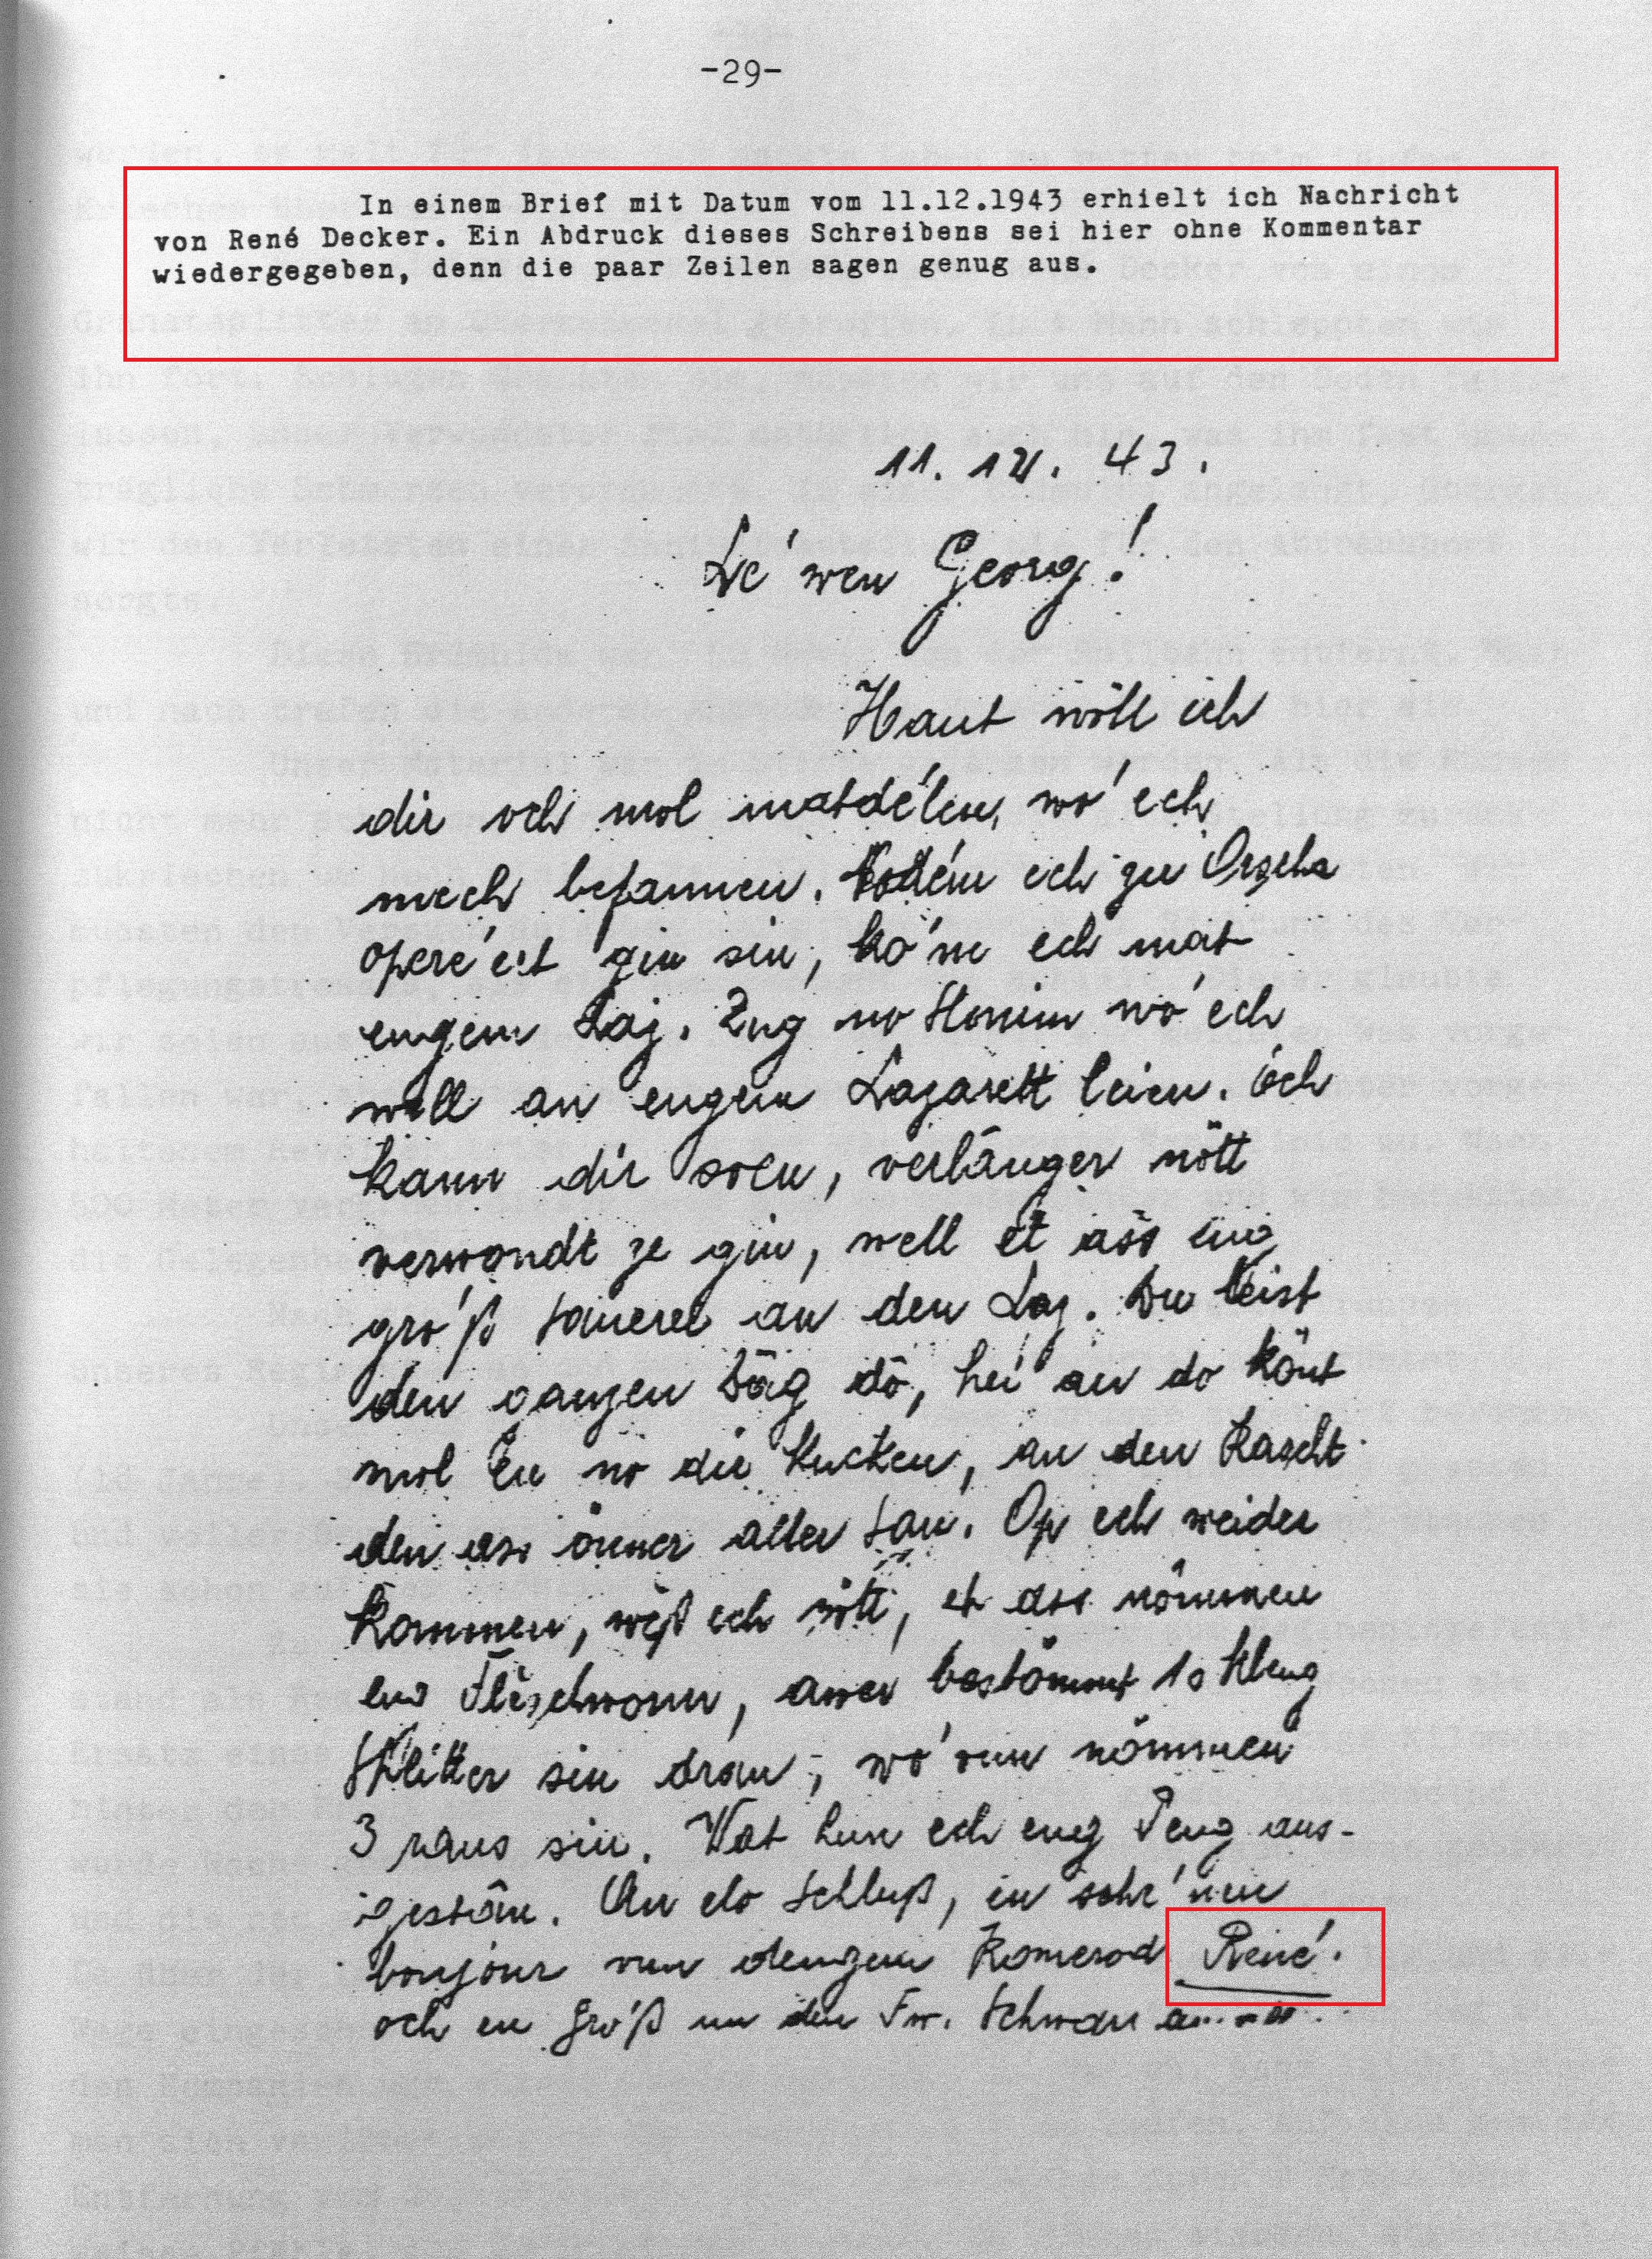 -29-
In einem Brief mit Datum vom 11.12.1943 erhielt ich Nachricht
von René Decker. Ein Abdruck dieses Schreibens sei hier ohne Kommentar
wiedergegeben, denn die paar Zeilen sagen genug aus.
11. 12. 43.
Le'wen Georg!
Haut wöll ech
dir och mol matdélen, wo' ech
mech befannen. ech zu Orscha
opere'ert gin sin, ko'm ech mat
engem Laz. Zug no wo' ech
well an engem Lazarett leien. Ech
kann dir soen, verlänger nött
verwondt ze gin, well et ass eng
gro'ß Sauerei an den Laz. Du leist
den ganzen Dåg do, hei an do könt
mol én no dir kucken, an den Rascht
den ass önner aller Sau. Op ech weider
kommen, wéß ech nött, et ass nömmen
eng Fléschwonn, awer bestömmt 10 kleng
Splitter sin dran, wo'vun nömmen
3 raus sin. Wat hun ech eng Peng aus-
gestån. An do Schluß, en
bonjour vun dengem Komerod René.
och en Gro'ß un den Fw. Schwan